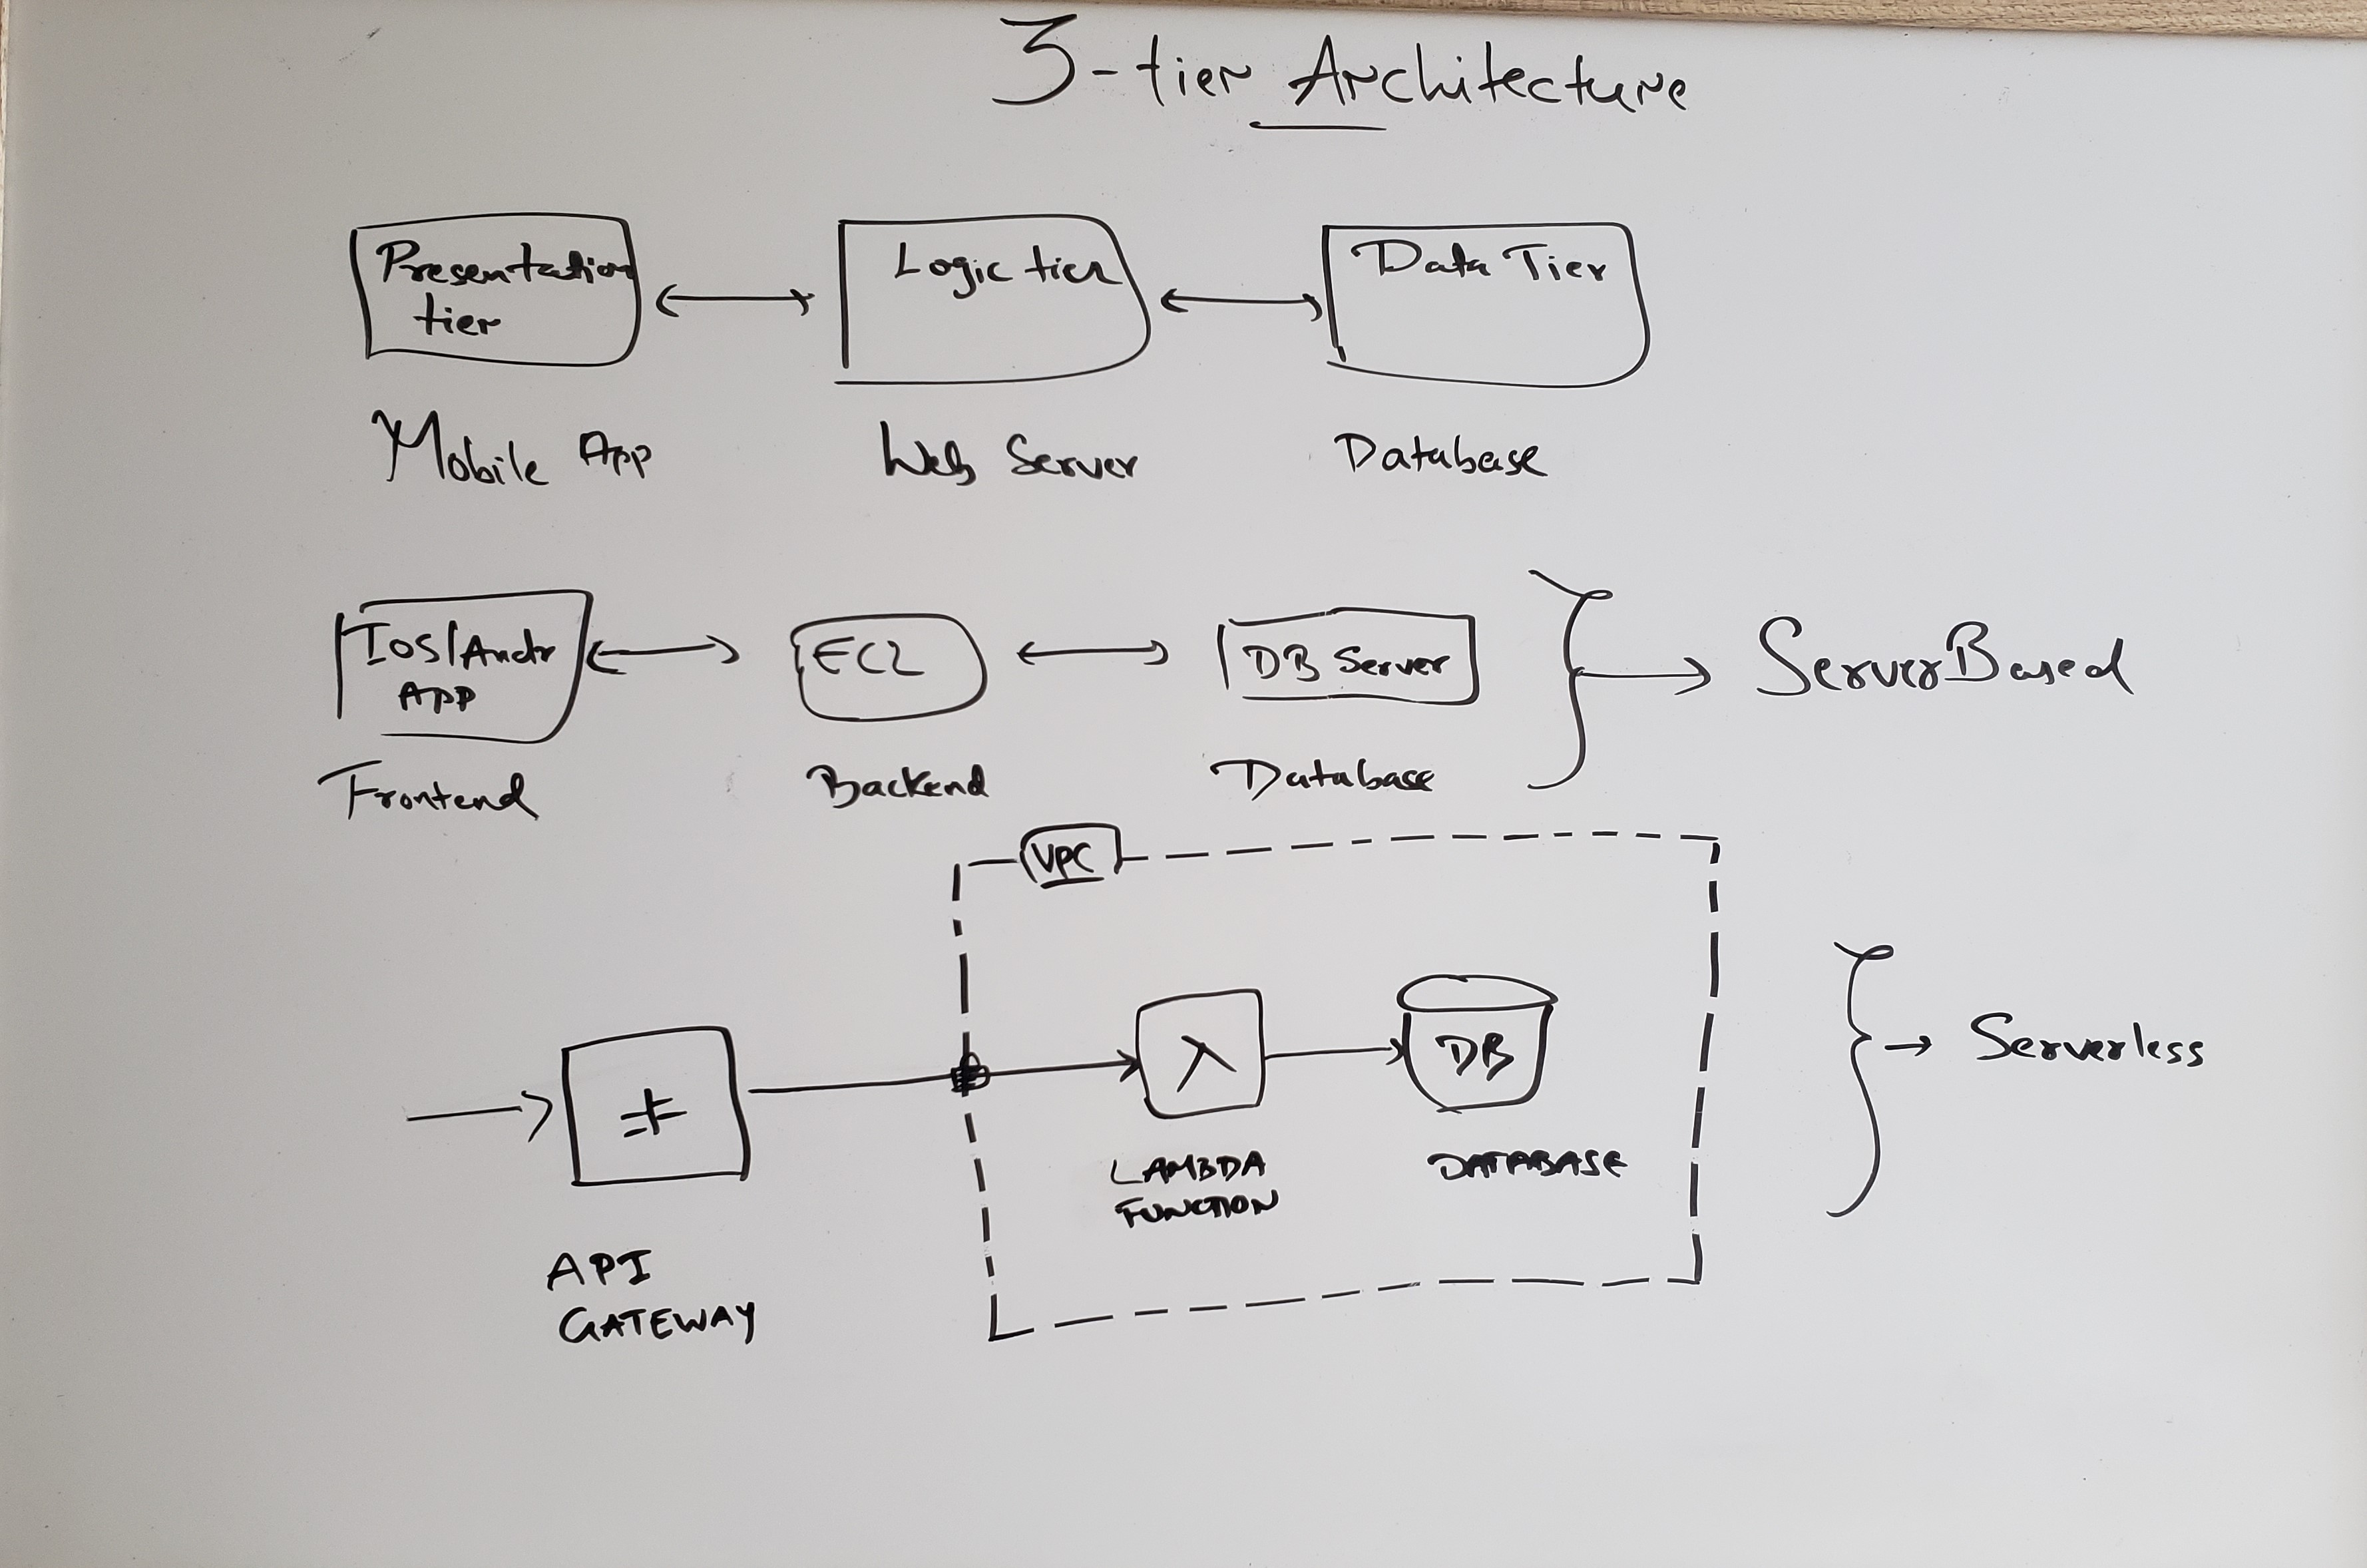 3-tier Architecture
Presentation
tier
Logic tier
Data Tier
Mobile App
Web Server
Database
Ios/Andr
APP
EC2
DB Server
ServerBased
Frontend
Backend
Database
VPC
λ
DB
Serverless
LAMBDA
FUNCTION
DATABASE
API
GATEWAY